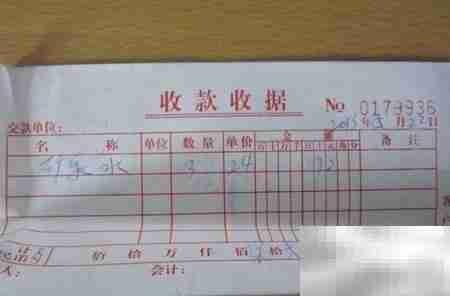 收款收据 No 0179936
交款单位: 2013年5月22日
名称 单位 数量 单价 金额 备注
百十万千百十元角分
水 3 24 72
佰拾万仟佰拾
人: 会计: